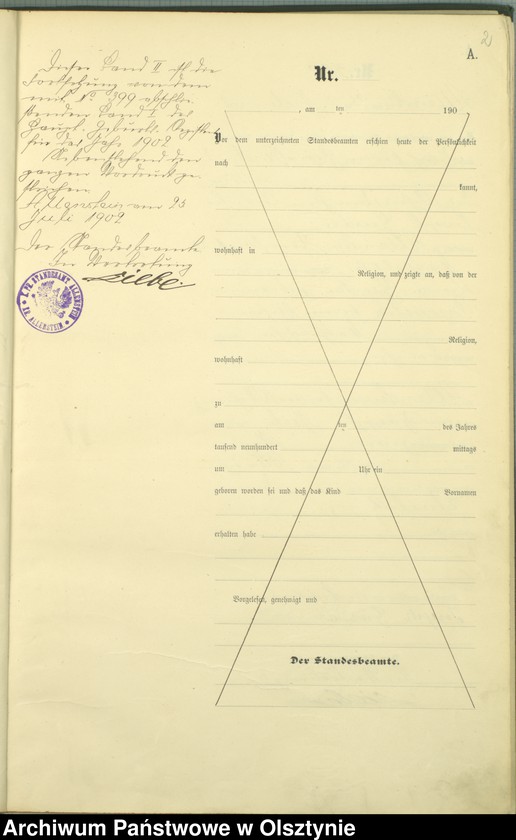 2
A.
Dieser Band II ist die
Fortsetzung von dem
mit No 399 abschlie-
ßenden Band I des
Haupt-Geburts-Registers
für das Jahr 1902
Nebenstehenden
ganzen Vordruck ge-
strichen.
Allenstein am 25
Juli 1902
Der Standesbeamte
In Vertretung
K. PR. STANDESAMT ALLENSTEIN
KR. ALLENSTEIN
Nr.
, am ten 190
Vor dem unterzeichneten Standesbeamten erschien heute der Persönlichkeit
nach
kannt,
wohnhaft in
Religion, und zeigte an, daß von der
Religion,
wohnhaft
zu
am ten des Jahres
tausend neunhundert mittags
um Uhr ein
geboren worden sei und daß das Kind Vornamen
erhalten habe
Vorgelesen, genehmigt und
Der Standesbeamte.
Archiwum Państwowe w Olsztynie